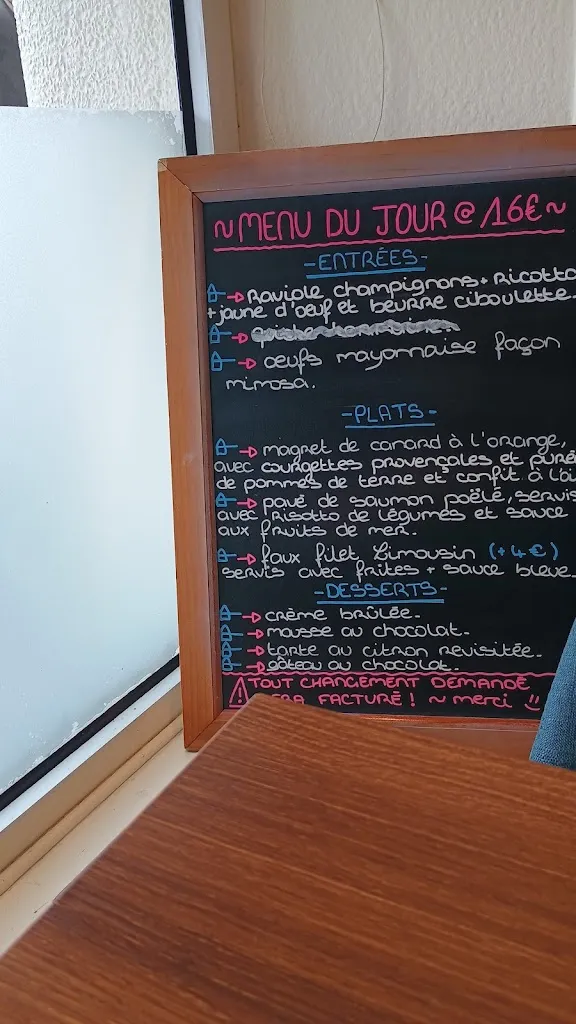 ~MENU DU JOUR @ 16€~
-ENTRÉES-
Raviole champignons + Ricotta
+ jaune d'oeuf et beurre ciboulette.
oeufs mayonnaise façon
mimosa.
-PLATS-
magret de canard à l'orange,
avec courgettes provençales et puré
de pommes de terre et confit à l'
pavé de saumon poêlé, servis
avec risotto de légumes et sauce
aux fruits de mer.
faux filet Limousin (+4€)
servis avec frites + sauce bleue.
-DESSERTS-
crème brûlée.
mousse au chocolat.
tarte au citron revisitée.
gâteau au chocolat.
TOUT CHANGEMENT DEMANDÉ
FACTURÉ! ~ merci